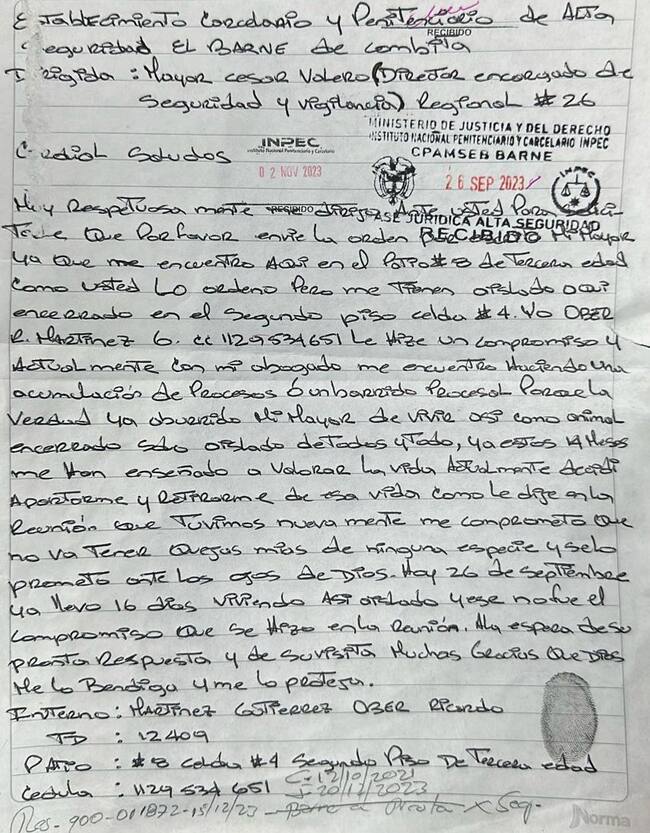 Establecimiento Carcelario y Penitenciario de Alta
RECIBIDO
Seguridad EL BARNE de Combita
Dirigida : Mayor cesar Valero (Director encargado de
Seguridad y vigilancia) Regional #26
MINISTERIO DE JUSTICIA Y DEL DERECHO
INSTITUTO NACIONAL PENITENCIARIO Y CARCELARIO INPEC
CPAMSEB BARNE
Cordial Saludos
INPEC
Instituto Nacional Penitenciario y Carcelario
02 NOV 2023
26 SEP 2023
INPEC
Muy Respetuosa mente dirijo Ante usted Para
RECIBIDO
JURIDICA ALTA SEGURIDAD
RECIBIDO
Que Por favor envie la orden Mi Mayor
ya que me encuentro AQUI en el Patio #8 de Tercera edad
como usted Lo ordeno Pero me tienen aislado aqui
encerrado en el Segundo piso celda #4. Yo OBER
R. Martinez G. cc 1129534651 Le Hize un compromiso y
Actual mente con mi abogado me encuentro Haciendo una
acumulación de Procesos ó un barrido Procesal Porque la
Verdad ya aburrido Mi Mayor de vivir asi como animal
encerrado solo aislado de Todos y Todo, ya estos 14 Meses
me Han enseñado a valorar la vida Actualmente decidi
Apartarme y Retirarme de esa vida como le dije en la
Reunión que Tuvimos nueva mente me comprometo que
no va Tener Quejas mias de ninguna especie y se lo
prometo ante los ojos de Dios. Hoy 26 de septiembre
ya llevo 16 dias viviendo Asi aislado y ese no fue el
compromiso Que se Hizo en la Reunión. A la espera de su
pronta Respuesta y de su visita Muchas Gracias Que Dios
Me lo Bendiga y me lo proteja.
Interno : Martinez Gutierrez OBER Ricardo
TD : 12409
PATIO : #8 celda #4 Segundo Piso De Tercera edad
Cedula : 1129 534 651
C-12/10/2021
20/12/2023
Res- 900-011872-15/12/23
Norma